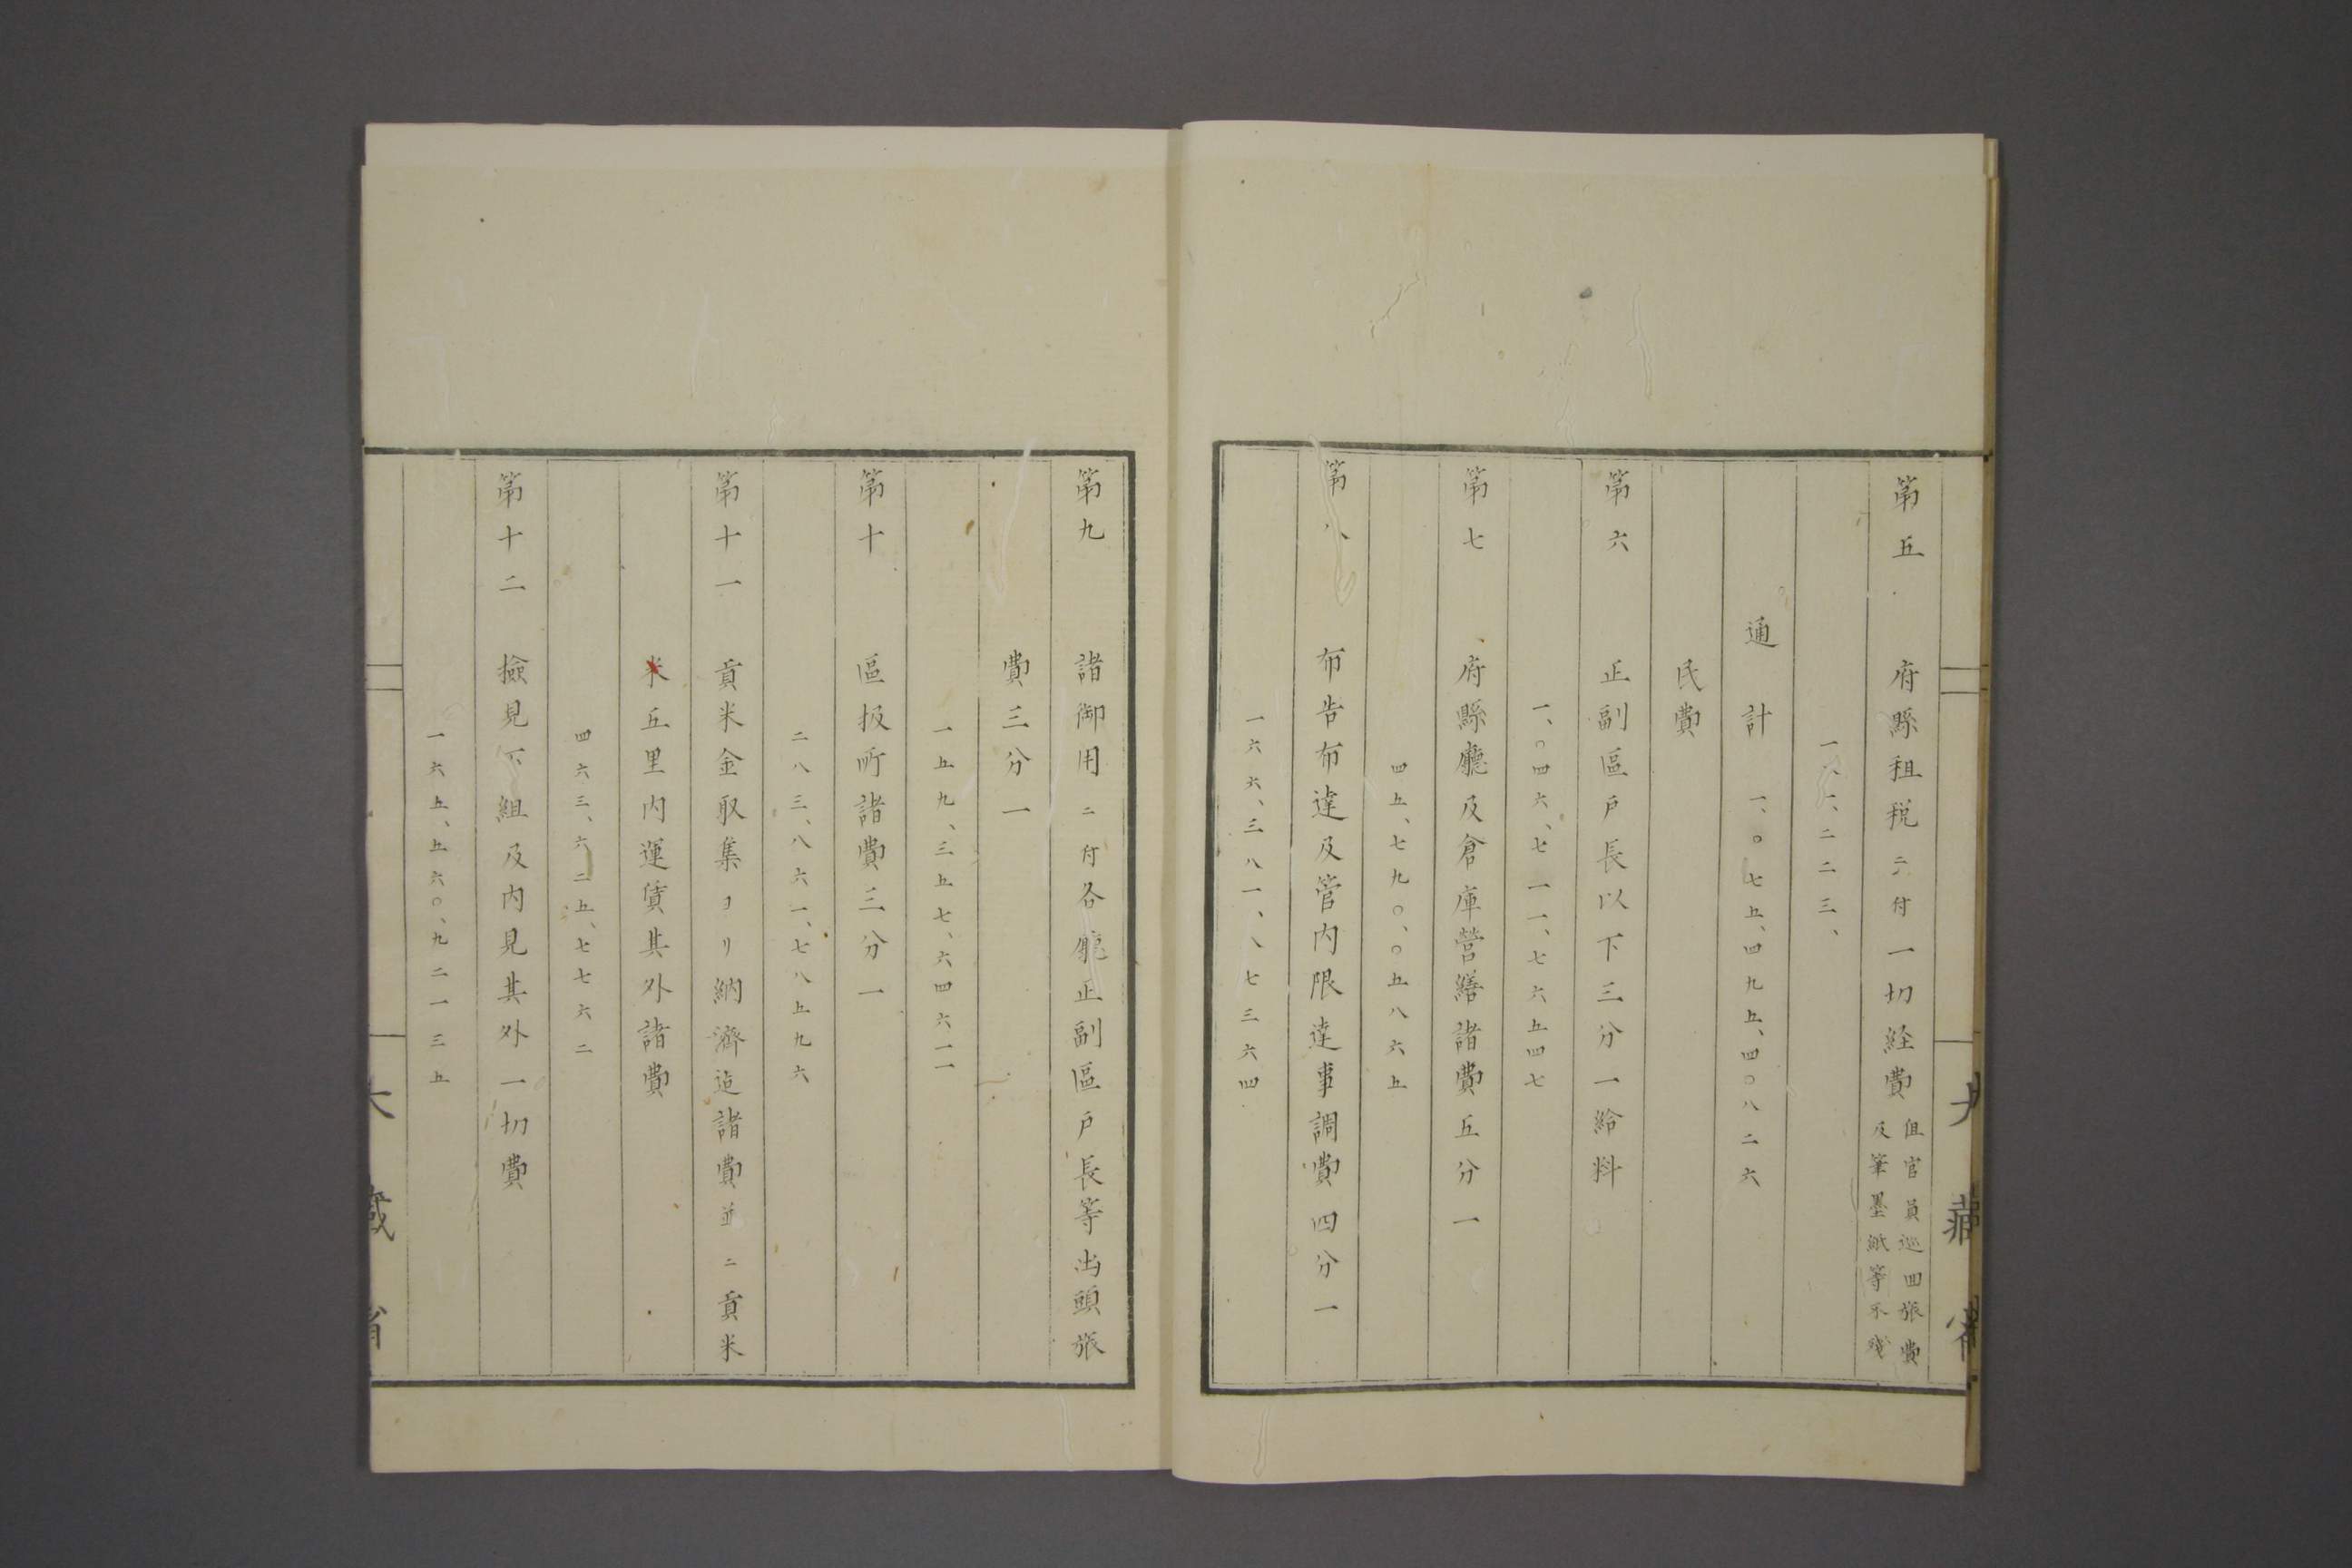 第五　府縣租税ニ付一切経費
但官員巡回旅費
及筆墨紙等不残
通計　一、〇七五、四九五、四〇八二六
民費
第六　正副區戸長以下三分一給料
一、〇四六、七一一、七六五四七
第七　府縣廳及倉庫營繕諸費五分一
四五、七九〇、〇五八六五
第八　布告布達及管内限達事調費四分一
一六六、三八一、八七三六四
第九　諸御用ニ付各廳正副區戸長等出頭旅
費三分一
一五九、三五七、六四六一一
第十　區扱所諸費三分一
二八三、八六一、七八五九六
第十一　貢米金取集ヨリ納濟迠諸費並ニ貢米
米五里内運賃其外諸費
四六三、六二五、七七六二
第十二　撿見下組及内見其外一切費
一六五、五六〇、九二一三五
大藏省